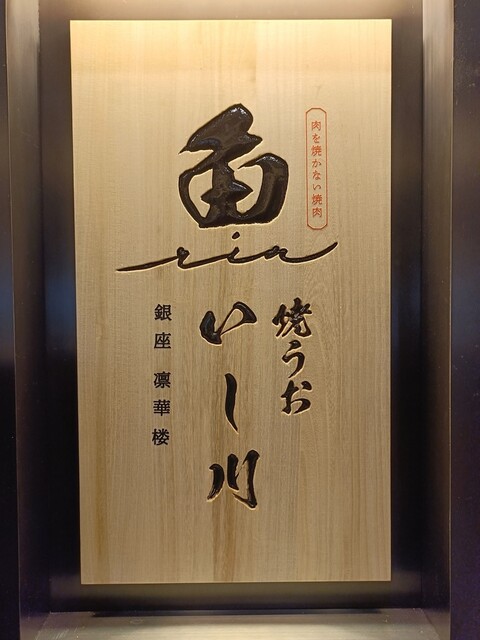 肉を焼かない焼肉
魚
rin
焼うお
いし川
銀座 凛華楼